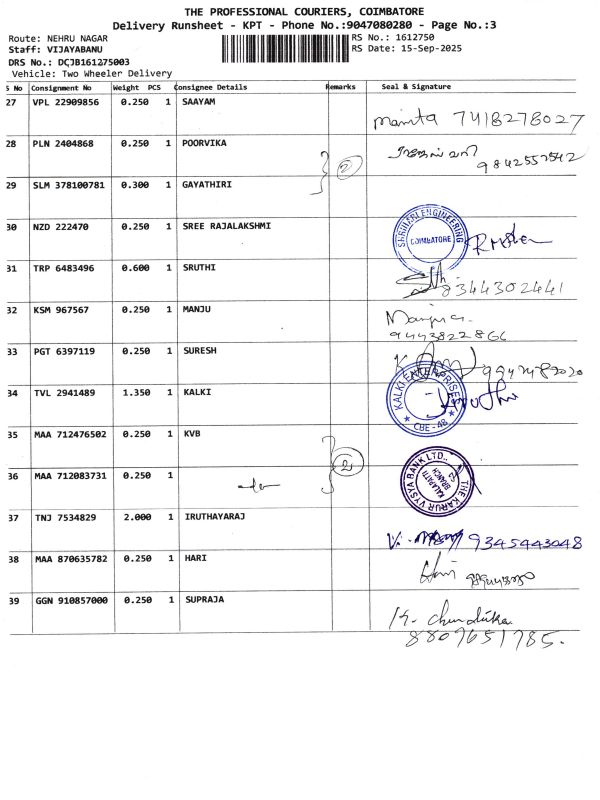 THE PROFESSIONAL COURIERS, COIMBATORE
Delivery Runsheet - KPT - Phone No.:9047080280 - Page No.:3
Route: NEHRU NAGAR RS No.: 1612750
Staff: VIJAYABANU RS Date: 15-Sep-2025
DRS No.: DCJB161275003
Vehicle: Two Wheeler Delivery
S No Consignment No Weight PCS Consignee Details Remarks Seal & Signature
27 VPL 22909856 0.250 1 SAAYAM
Mamta 7418278027
28 PLN 2404868 0.250 1 POORVIKA
2 9842557542
29 SLM 378100781 0.300 1 GAYATHIRI
30 NZD 222470 0.250 1 SREE RAJALAKSHMI
SHRIHARI ENGINEERING COIMBATORE
31 TRP 6483496 0.600 1 SRUTHI
8344302441
32 KSM 967567 0.250 1 MANJU
Manju
9443822866
33 PGT 6397119 0.250 1 SURESH
34 TVL 2941489 1.350 1 KALKI
KALKI ENTERPRISES CBE - 48
35 MAA 712476502 0.250 1 KVB
2
36 MAA 712083731 0.250 1
THE KARUR VYSYA BANK LTD., KALAPATTI BRANCH
37 TNJ 7534829 2.000 1 IRUTHAYARAJ
9345443048
38 MAA 870635782 0.250 1 HARI
Hari
39 GGN 910857000 0.250 1 SUPRAJA
8807651785.